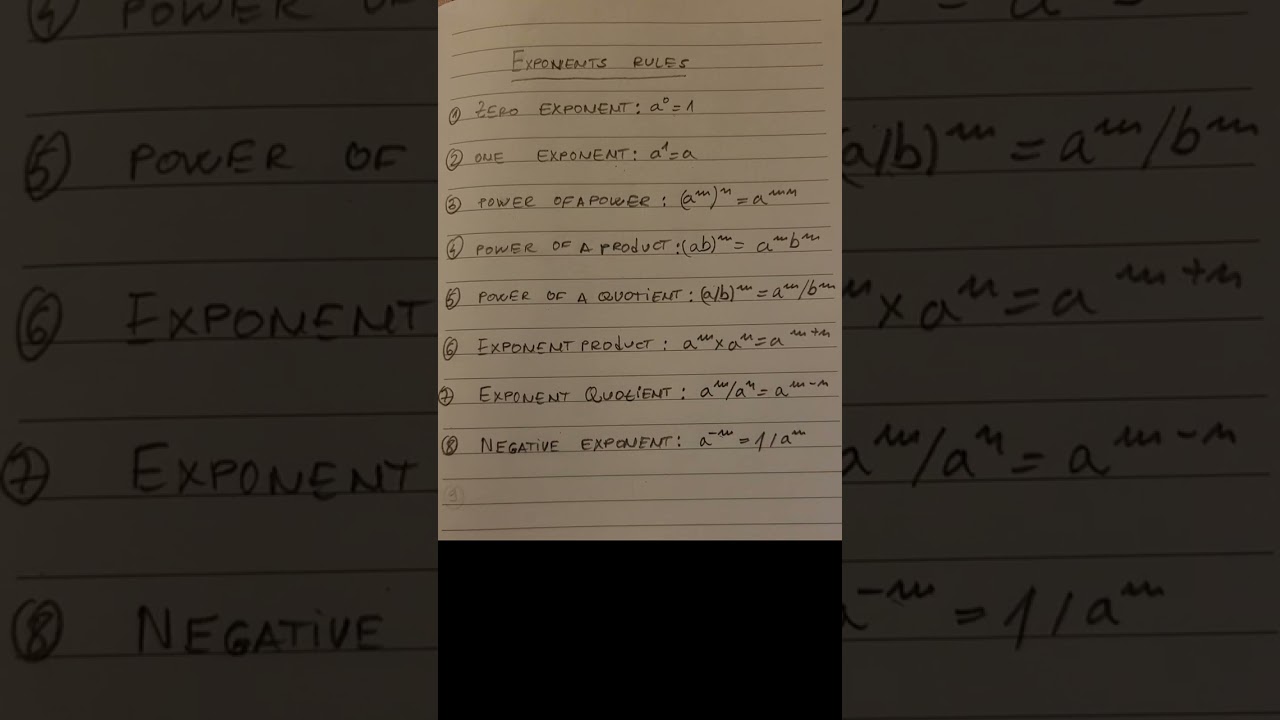 EXPONENTS RULES
① ZERO EXPONENT: a⁰ = 1
② ONE EXPONENT: a¹ = a
③ POWER OF A POWER: (aᵐ)ⁿ = aᵐⁿ
④ POWER OF A PRODUCT: (ab)ᵐ = aᵐbᵐ
⑤ POWER OF A QUOTIENT: (a/b)ᵐ = aᵐ/bᵐ
⑥ EXPONENT PRODUCT: aᵐ x aⁿ = aᵐ⁺ⁿ
⑦ EXPONENT QUOTIENT: aᵐ/aⁿ = aᵐ⁻ⁿ
⑧ NEGATIVE EXPONENT: a⁻ᵐ = 1/aᵐ